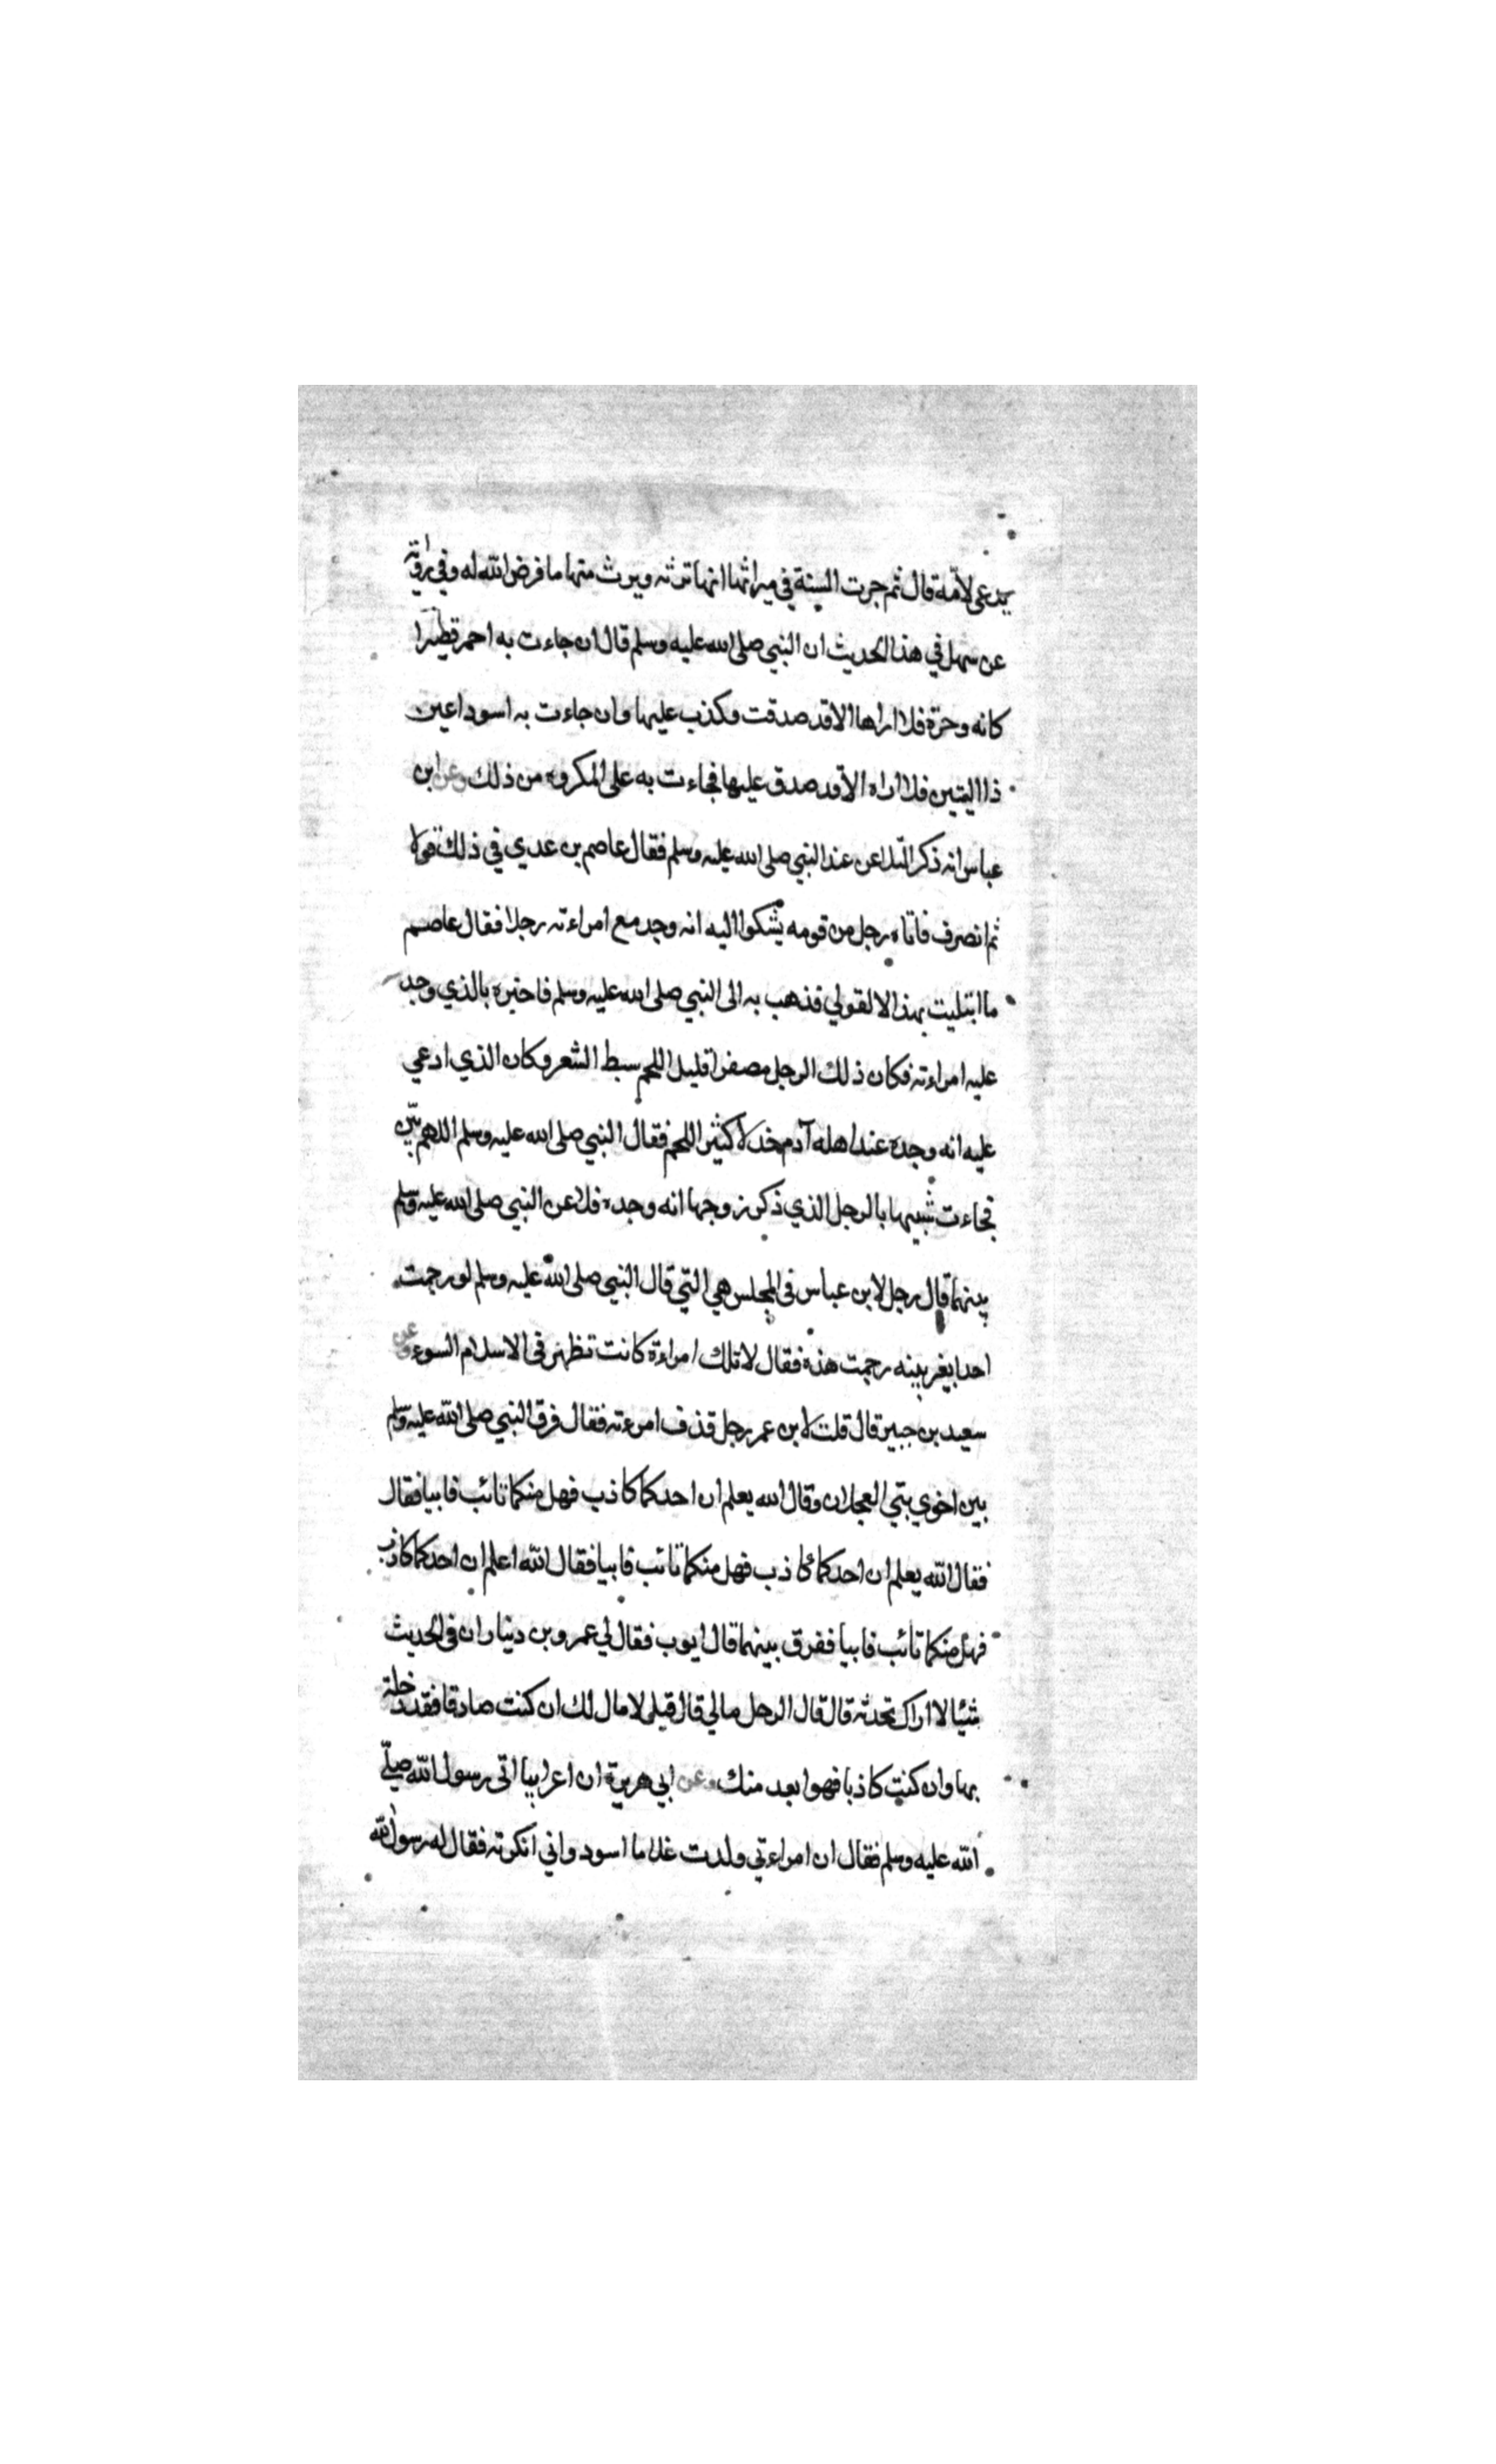 يدعى لامّه قال ثم جرت السنة في ميراثها انها ترثه ويرث منها ما فرض الله له وفي رواية
عن سهل في هذا الحديث ان النبي صلى الله عليه وسلم قال ان جاءت به احمر قصيرا
كانه وحرة فلا اراها الا قد صدقت وكذب عليها وان جاءت به اسود اعين
ذا اليتين فلا اراه الا قد صدق عليها فجاءت به على المكروه من ذلك وعن ابن
عباس انه ذكر التلاعن عند النبي صلى الله عليه وسلم فقال عاصم بن عدي في ذلك قولا
ثم انصرف فاتاه رجل من قومه يشكوا اليه انه وجد مع امراءته رجلا فقال عاصم
ما ابتليت بهذا الا لقولي فذهب به الى النبي صلى الله عليه وسلم فاخبره بالذي وجد
عليه امراءته فكان ذلك الرجل مصفرا قليل اللحم سبط الشعر وكان الذي ادعي
عليه انه وجده عند اهله آدم خدلا كثير اللحم فقال النبي صلى الله عليه وسلم اللهم بيّن
فجاءت شبيها بالرجل الذي ذكر زوجها انه وجده فلاعن النبي صلى الله عليه وسلم
بينهما قال رجل لابن عباس في المجلس هي التي قال النبي صلى الله عليه وسلم لو رجمت
احدا بغير بينه رجمت هذه فقال لا تلك امراءة كانت تظهر في الاسلام السوء وعن
سعيد بن جبير قال قلت لابن عمر رجل قذف امرءته فقال فرق النبي صلى الله عليه وسلم
بين اخوي بني العجلان وقال الله يعلم ان احدكما كاذب فهل منكما تائب فابيا فقال
فقال الله يعلم ان احدكما كاذب فهل منكما تائب فابيا فقال الله اعلم ان احدكما كاذب
فهل منكما تائب فابيا ففرق بينهما قال ايوب فقال لي عمرو بن دينار ان في الحديث
شيئا لا اراك تحدثه قال قال الرجل مالي قال قيل لا مال لك ان كنت صادقا فقد دخلت
بها وان كنت كاذبا فهو ابعد منك وعن ابي هريرة ان اعرابيا اتى رسول الله صلّى
الله عليه وسلم فقال ان امراءتي ولدت غلاما اسود واني انكرته فقال له رسول الله